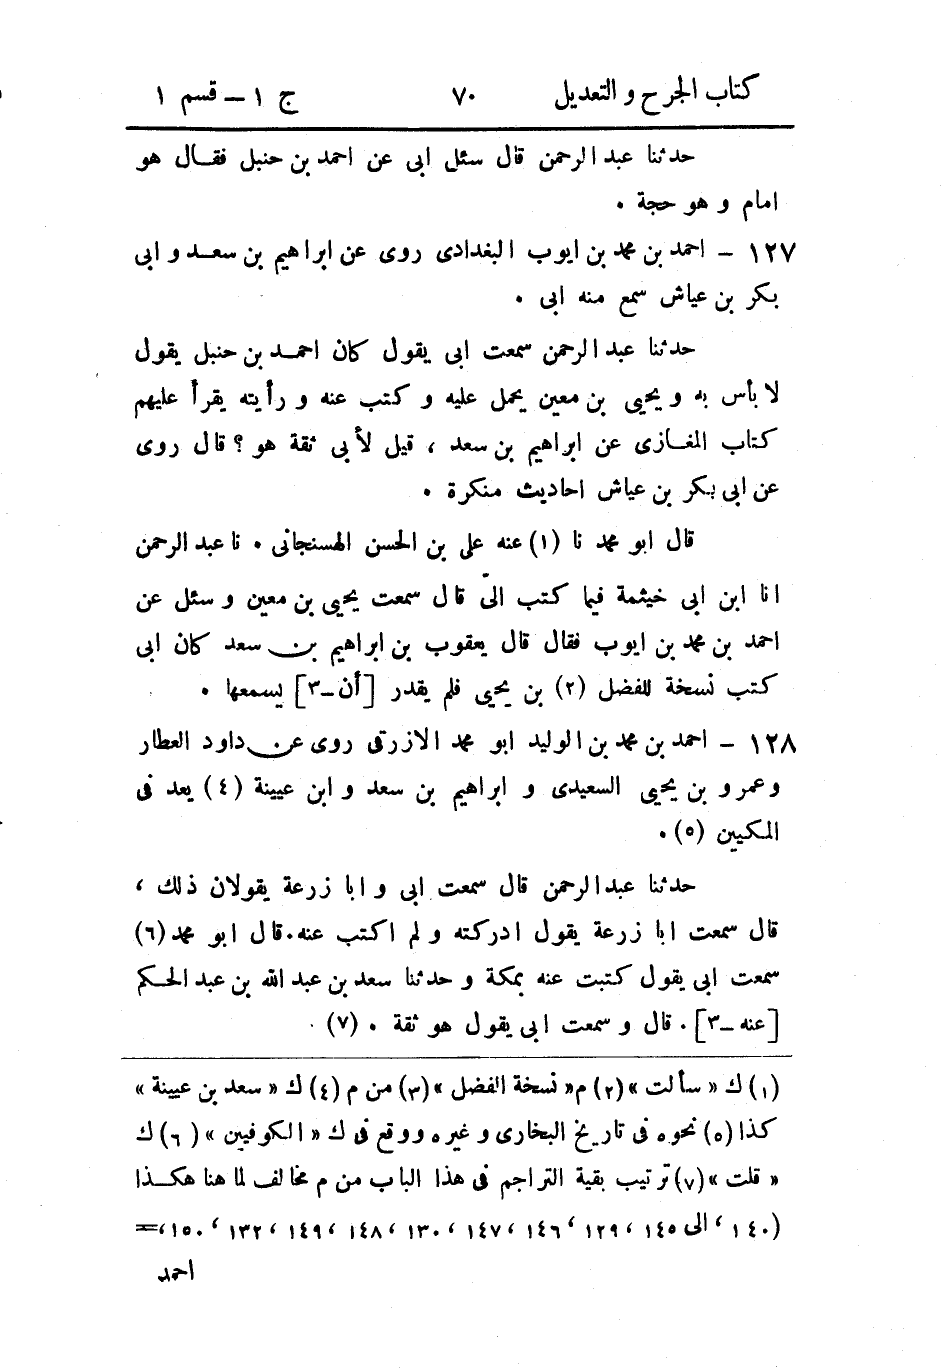 كتاب الجرح و التعديل ٧٠ ج ١ – قسم ١
حدثنا عبد الرحمن قال سئل ابى عن احمد بن حنبل فقال هو
امام و هو حجة .
١٢٧ – احمد بن محمد بن ايوب البغدادى روى عن ابراهيم بن سعد و ابى
بكر بن عياش سمع منه ابى .
حدثنا عبد الرحمن سمعت ابى يقول كان احمد بن حنبل يقول
لا بأس به و يحيى بن معين يحمل عليه و كتب عنه و رأيته يقرأ عليهم
كتاب المغازى عن ابراهيم بن سعد ، قيل لأبى ثقة هو ؟ قال روى
عن ابى بكر بن عياش احاديث منكرة .
قال ابو محمد نا (١) عنه على بن الحسن الهسنجانى . نا عبد الرحمن
انا ابن ابى خيثمة فيما كتب الىّ قال سمعت يحيى بن معين و سئل عن
احمد بن محمد بن ايوب فقال قال يعقوب بن ابراهيم بن سعد كان ابى
كتب نسخة للفضل (٢) بن يحيى فلم يقدر [أن–٣] يسمعها .
١٢٨ – احمد بن محمد بن الوليد ابو محمد الازرقى روى عن داود العطار
وعمرو بن يحيى السعيدى و ابراهيم بن سعد و ابن عيينة (٤) يعد فى
المكيين (٥).
حدثنا عبد الرحمن قال سمعت ابى و ابا زرعة يقولان ذلك ،
قال سمعت ابا زرعة يقول ادركته و لم اكتب عنه.قال ابو محمد (٦)
سمعت ابى يقول كتبت عنه بمكة و حدثنا سعد بن عبد الله بن عبد الحكم
[عنه–٣]. قال و سمعت ابى يقول هو ثقة . (٧)
(١) ك « سألت » (٢) م« نسخة الفضل »(٣) من م (٤) ك « سعد بن عيينة »
كذا (٥) نحوه فى تاريخ البخارى و غيره ووقع فى ك « الكوفيين » (٦) ك
« قلت »(٧) ترتيب بقية التراجم فى هذا الباب من م مخالف لما هنا هكذا
(١٤٠ ، الى ١٤٥ ، ١٢٩ ، ١٤٦ ، ١٤٧ ، ١٣٠ ، ١٤٨ ، ١٤٩ ، ١٣٢ ، ١٥٠ ،=
احمد